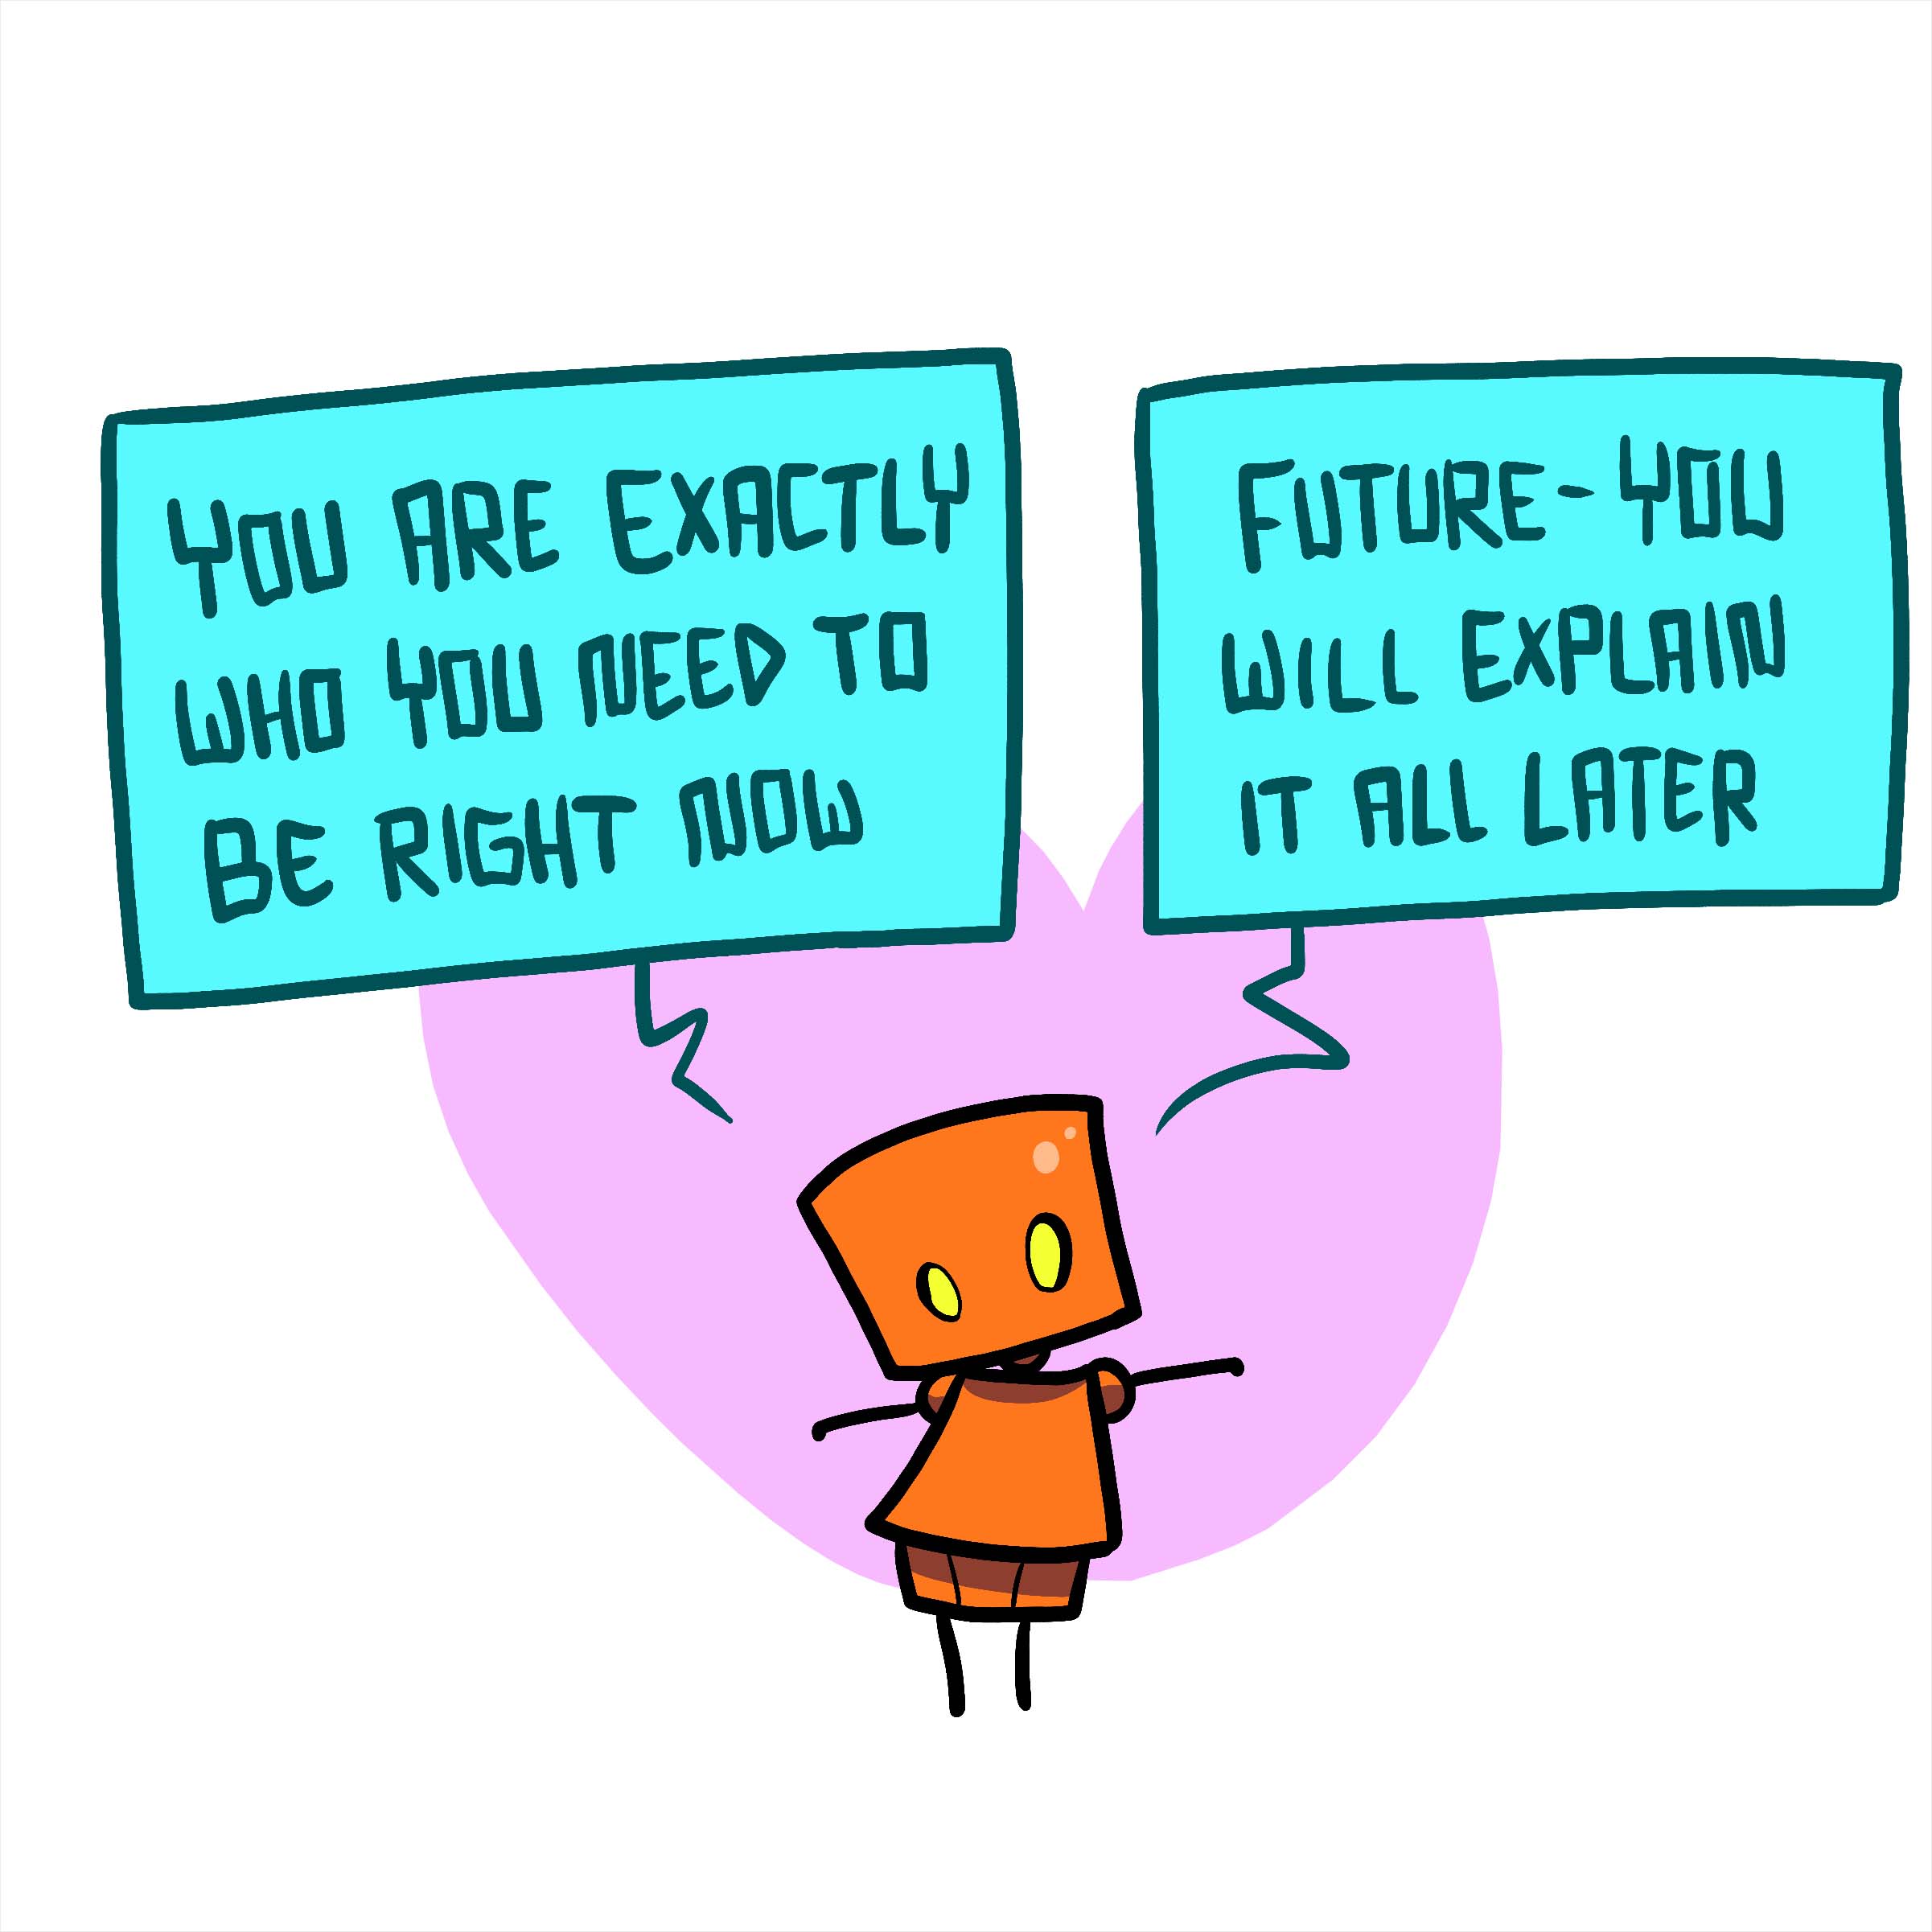 YOU ARE EXACTLY
WHO YOU NEED TO
BE RIGHT NOW
FUTURE-YOU
WILL EXPLAIN
IT ALL LATER